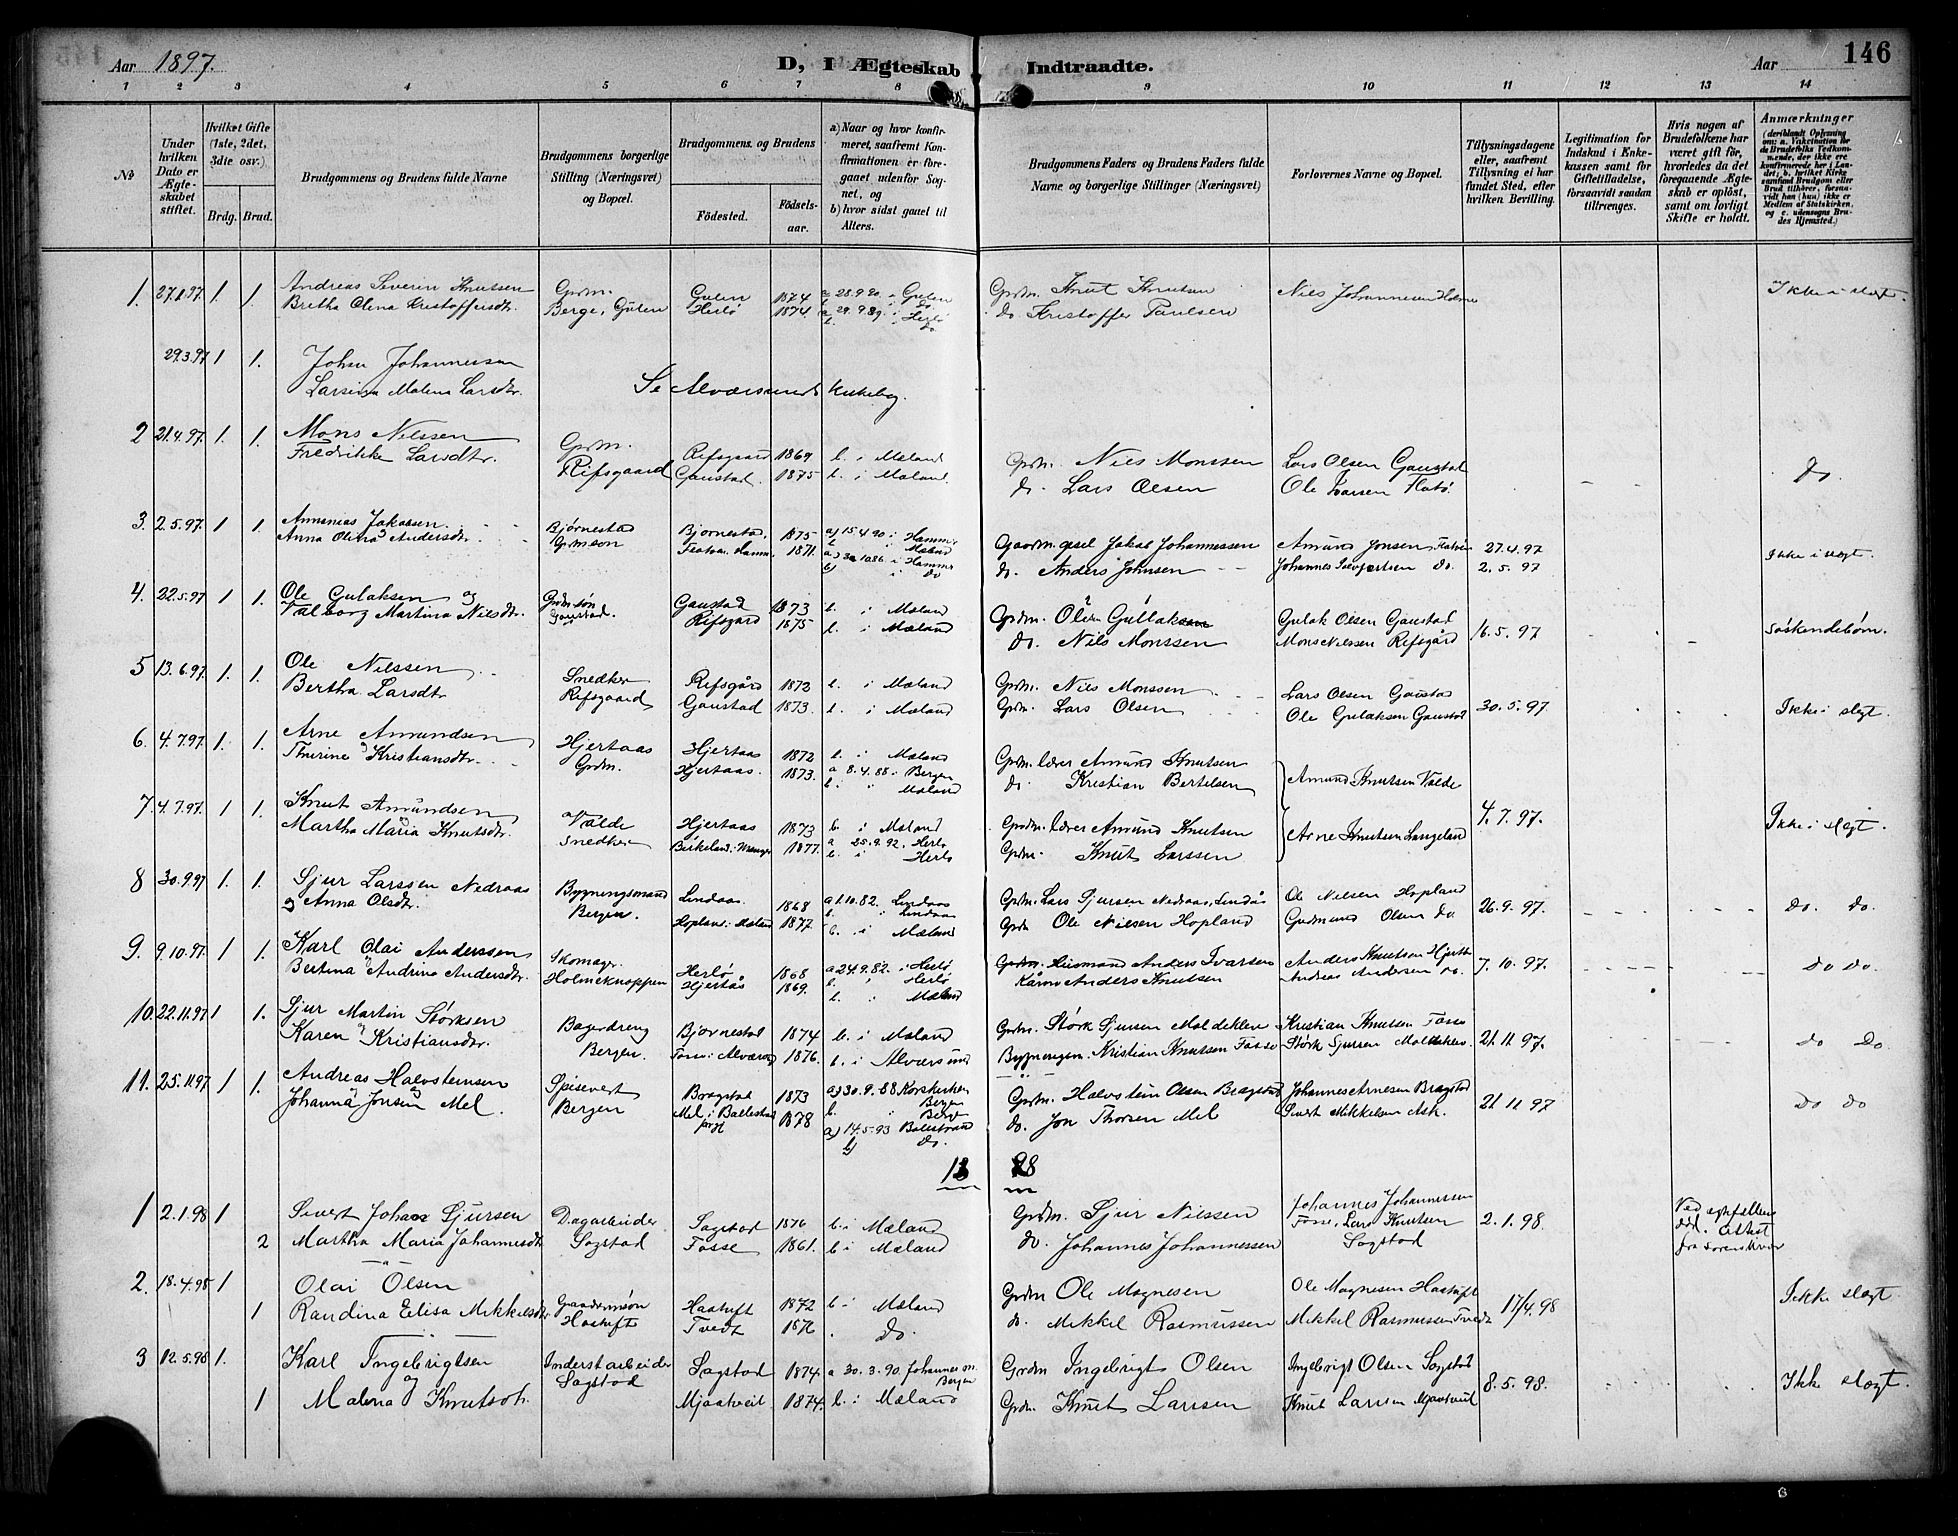 Aar 1897.
D, I Ægteskab Indtraadte.
Aar
146
1 2 3 4 5 6 7 8 9 10 11 12 13 14
No
Under hvilken Dato er Ægteskabet stiftet.
Hvilket Gifte (1ste, 2det, 3dte osv.)
Brdg. Brud.
Brudgommens og Brudens fulde Navne
Brudgommens borgerlige Stilling (Næringsvei) og Bopæl.
Brudgommens. og Brudens
Födested.
Födselsaar.
a) Naar og hvor konfirmeret, saafremt Konfirmationen er foregaaet udenfor Sognet, og
b) hvor sidst gaaet til Alters.
Brudgommens Faders og Brudens Faders fulde Navne og borgerlige Stillinger (Næringsvei)
Forlovernes Navne og Bopæl.
Tillysningsdagene eller, saafremt Tillysning ei har fundet Sted, efter hvilken Bevilling.
Legitimation for Indskud i Enkekassen samt for Giftetilladelse, forsaavidt saadan tiltrænges.
Hvis nogen af Brudefolkene har været gift før, hvorledes da det foregaaende Ægteskab er opløst, samt om lovligt Skifte er holdt.
Anmærkninger
1. 27.1.97. 1 1. Andreas Severin Knutsen Grdm. Gulen 1874 a 28.9.90. i Gulen Grdm. Knut Knutsen Nils Johannesen Ikke i slegt.
Bretha Olina Kristoffersdtr. Berge, Gulen Herlø 1874. a 29.9.89. i Herlø do Kristoffer Paulsen
29.3.97 1 1. Johan Johannessen
Larsina Malena Larsdtr. Se Alværsunds kirkebog.
2 21.4.97. 1. 1. Mons Nilssen Grdm. Refsgaard 1869 b. i Mæland Grdm. Nils Monssen Lars Olsen Gaustad do
Fredrikke Larsdtr. Rifsgaard Gaustad. 1875 b. i Mæland. do. Lars Olsen Ole Larsen
3. 2.5.97. 1 1. Annanias Jakobsen. Bjørnestad Bjørnestad. 1875 a) 15.4.90 i Hammer Gaardm. Jakob Johannessen Amund Jonsen 27.4.97 Ikke i slegt.
Anna Olina Andersdtr. 1871. i Hammer do. Anders Johnsen Johannes do. 2.5.97
4. 22.5.97 1 1. Ole Gulaksen og Grdm.søn Gaustad 1873 b. i Mæland Grdm. Gulak Olsen Gaustad 16.5.97 Søskendebørn.
Valborg Martina Nilsdtr. Gaustad. Refsgård 1875 b. i Mæland do. Nils Monssen Mons Nilssen Refsgård
5 13.6.97. 1. 1. Ole Nilssen Snedker Refsgård 1872 b. i Mæland Grdm. Nils Monssen Lars Olsen Gaustad 30.5.97. Ikke i slegt.
Bertha Larsdtr Refsgaard Gaustad 1873. b. i Mæland Grdm. Lars Olsen Ole Gulaksen Gaustad
6. 4.7.97. 1. 1. Arne Amundsen Hjertaas Hjertaas 1872 b. i Mæland Grdm. lærer Amund Knutsen Amund Knutsen Valde
Thurine Kristiansdtr. Grdm. Hjertaas. 1873. a 8.4.88. i Bergen b. i Mæland do. Kristian Bertelsen
7. 4.7.97. 1 1. Knut Amundsen Valde Hjertaas 1873 b. i Mæland Grdm. lærer Amund Knutsen Arne Knutsen Langeland 4.7.97. Ikke i slegt.
Martha Maria Knutsdtr. Snedker Birkeland i Manger 1877. a 25.9.92. Herlø b. i Herlø Grdm. Knut Larssen
8 30.9.97 1. 1. Sjur Larssen Nedraas Bygningsmand Lindaas. 1868 a 1.10.82. Lindaas b. i Lindaas Grdm. Lars Sjursen Nedraas, Lindås Ole Nilsen Hopland 26.9.97. do. do.
og Anna Olsdtr. Bergen. Hopland i Mæland 1877. b. i Mæland Grdm Ole Nielsen Hopland Gudmund Olsen do
9. 9.10.97. 1 1. Karl Olai Anderssen Skomager. Herlø 1868 a 24.9.82. i Herlø b. i Herlø Husmand Anders Ivarsen Anders Knutsen 7.10.97. do do.
Bertina Andrina Andersdtr. Holmeknappen Hjertås 1869. b. i Mæland Anders Knutsen Andreas Andersen do.
10. 22.11.97 1 1. Sjur Martin Størksen Bagerdreng Bjørnestad 1874 b. i Mæland Grdm. Størk Sjursen Kristian Knutsen Fosse 21.11.97. do do.
Karen Kristiansdtr. Bergen. Fosse i Alværsund 1876. b. i Alværsund Bygningsm. Kristian Knutsen Fosse Størk Sjursen
11. 25.11.97 1 1. Andreas Halvsteinsen Spisevert Bragstad 1873 a) 30.9.88 Korskirken Bergen b. i Bergen Grdm. Halvstein Olsen Bragstad Johannes Arnesen Bragstad 21.11.97 do do
Johanna Jonsen Mel. Bergen Mel i Ballestrand 1878 a) 14.5.93 Balestrand b) do. do. Jon Thorsen Mel Sivert Mikkelsen Ask.
18 98
1 2.1.98 1 Sivert Johan Sjursen Dagarbeider Sagstad 1876 b. i Mæland Grdm. Sjur Nilssen Johannes Johannessen Fosse, Lars Knutsen Sagstad 2.1.98.
2 Martha Maria Johannesdtr Sagstad Fosse 1861. b i Mæland do. Johannes Johannessen
2. 18.4.98 1 Olai Olsen Gaardmandssøn Haatuft 1872 b. i Mæland Grdm Ole Magnesen Ole Magnesen Haatuft 17/4.98 Ikke slegt
1 Randina Elisa Mikkelsdtr Haatuft Tvedt 1876 do. do. Mikkel Rasmussen Mikkel Rasmussen Tvedt
3 12.5.98 1. Karl Ingebrigtsen og Sagstad 1874. a 30.3.90. Johannes m. Bergen Grdm Ingebrigt Olsen Ingebrigt Olsen Sagstad 8.5.98. Ikke slegt.
1 Malena Knutsdt. Sagstad Mjaatveit 1874. b. i Mæland Grdm. Knut Larssen Knut Larssen Mjaatveit